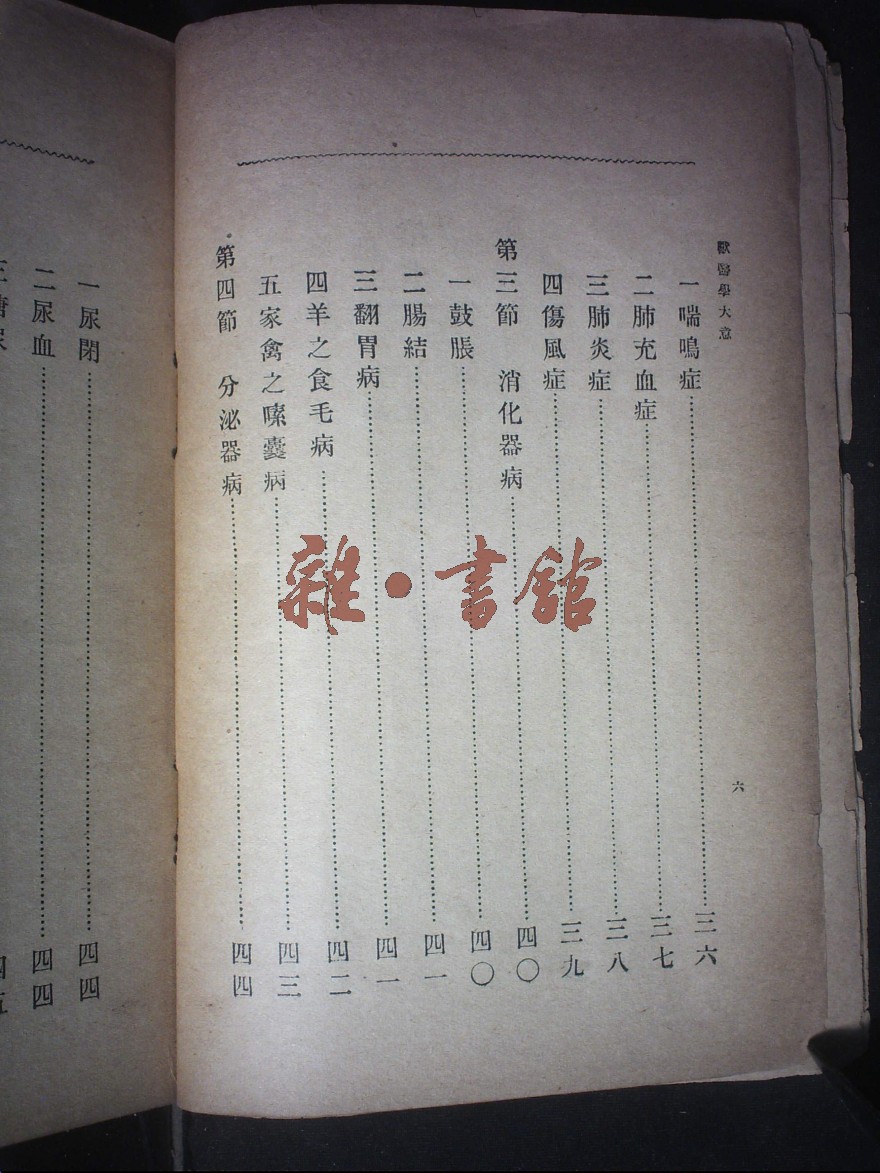 獸醫學大意
一喘鳴症……三六
二肺充血症……三七
三肺炎症……三八
四傷風症……三九
第三節 消化器病……四〇
一鼓脹……四〇
二腸結……四一
三翻胃病……四一
四羊之食毛病……四二
五家禽之嗉囊病……四三
第四節 分泌器病……四四
六
一尿閉……四四
二尿血……四四
雜·書舘